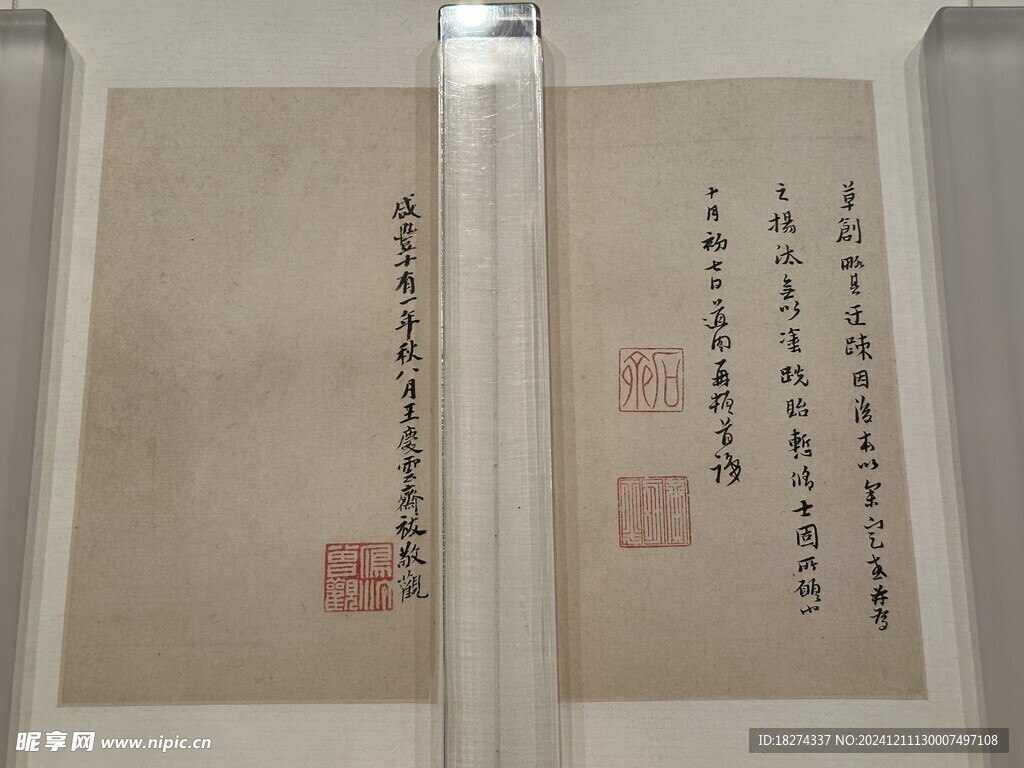 草創略具迂疎因後本以
之揚汰無以塗貽慙脩士固所願也
十月初七日道周再頓首識
石齋
咸豐十有一年秋八月王慶雲齋祓敬觀
昵享网 www.nipic.cn
ID:18274337 NO:20241211130007497108